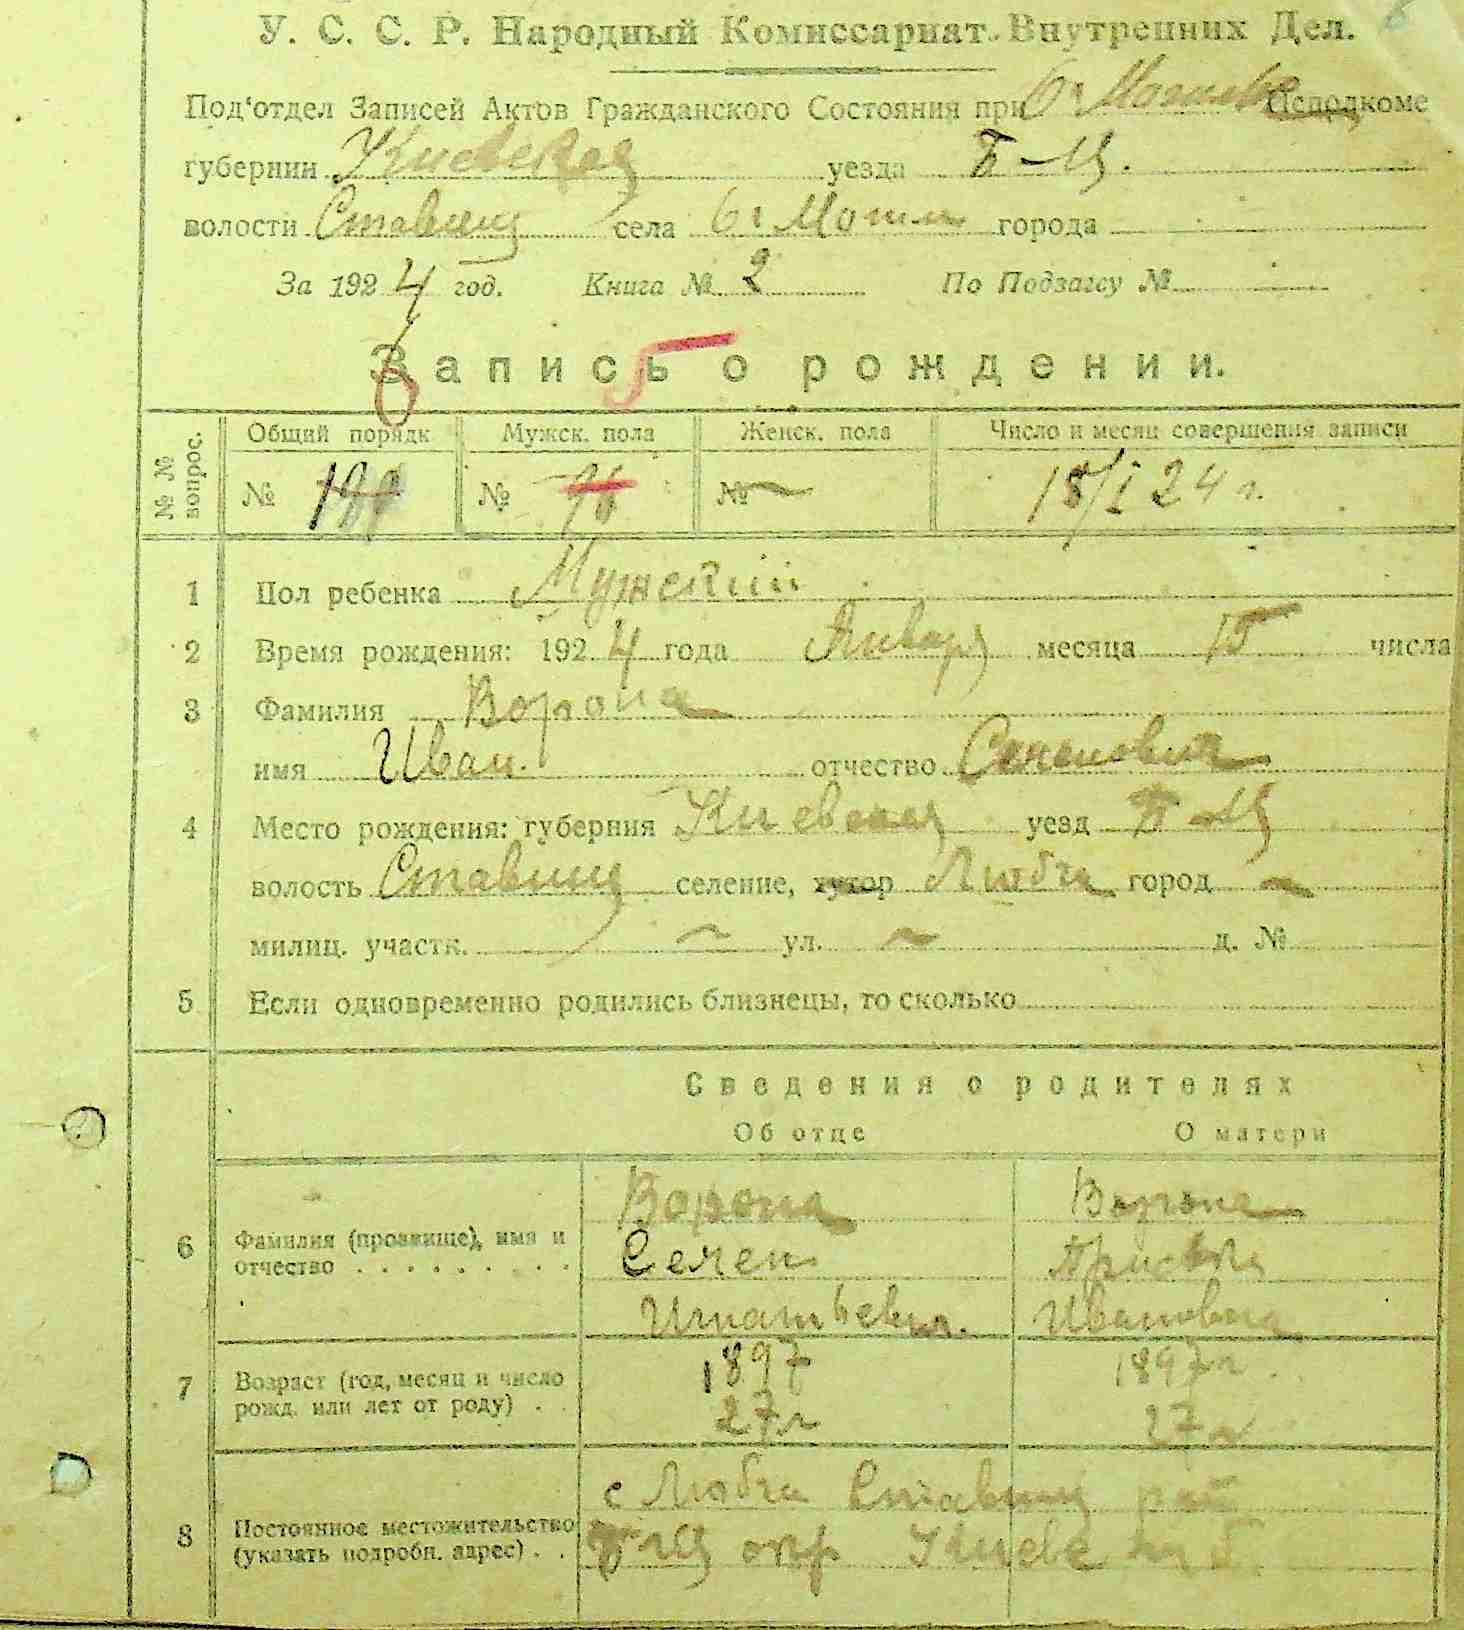 У. С. С. Р. Народный Комиссариат Внутренних Дел.
Под'отдел Записей Актов Гражданского Состояния при Исполкоме
губернии Киевская уезда Б-Ц.
волости Ставищ села города
За 1924 год. Книга № 2 По Подзагсу №
Запись о рождении.
№ № вопрос.
Общий порядк Мужск. пола Женск. пола Число и месяц совершения записи
№ № № 18/I 24 г.
1 Пол ребенка Мужский
2 Время рождения: 1924 года Января месяца 15 числа
3 Фамилия Ворона
имя Иван. отчество Семенович
4 Место рождения: губерния Киевская уезд Б-Ц
волость Ставищ селение, хутор Любча город
милиц. участк. ул. д. №
5 Если одновременно родились близнецы, то сколько
Сведения о родителях
Об отце О матери
Ворона Ворона
6 Фамилия (прозвище), имя и отчество Семен
Игнатьевич. Ивановна
7 Возраст (год, месяц и число рожд. или лет от роду) 1897 1897 г
27 г 27 г
8 Постоянное местожительство (указать подробн. адрес) с Любча Ставищ рай
Б-Ц окр Киев